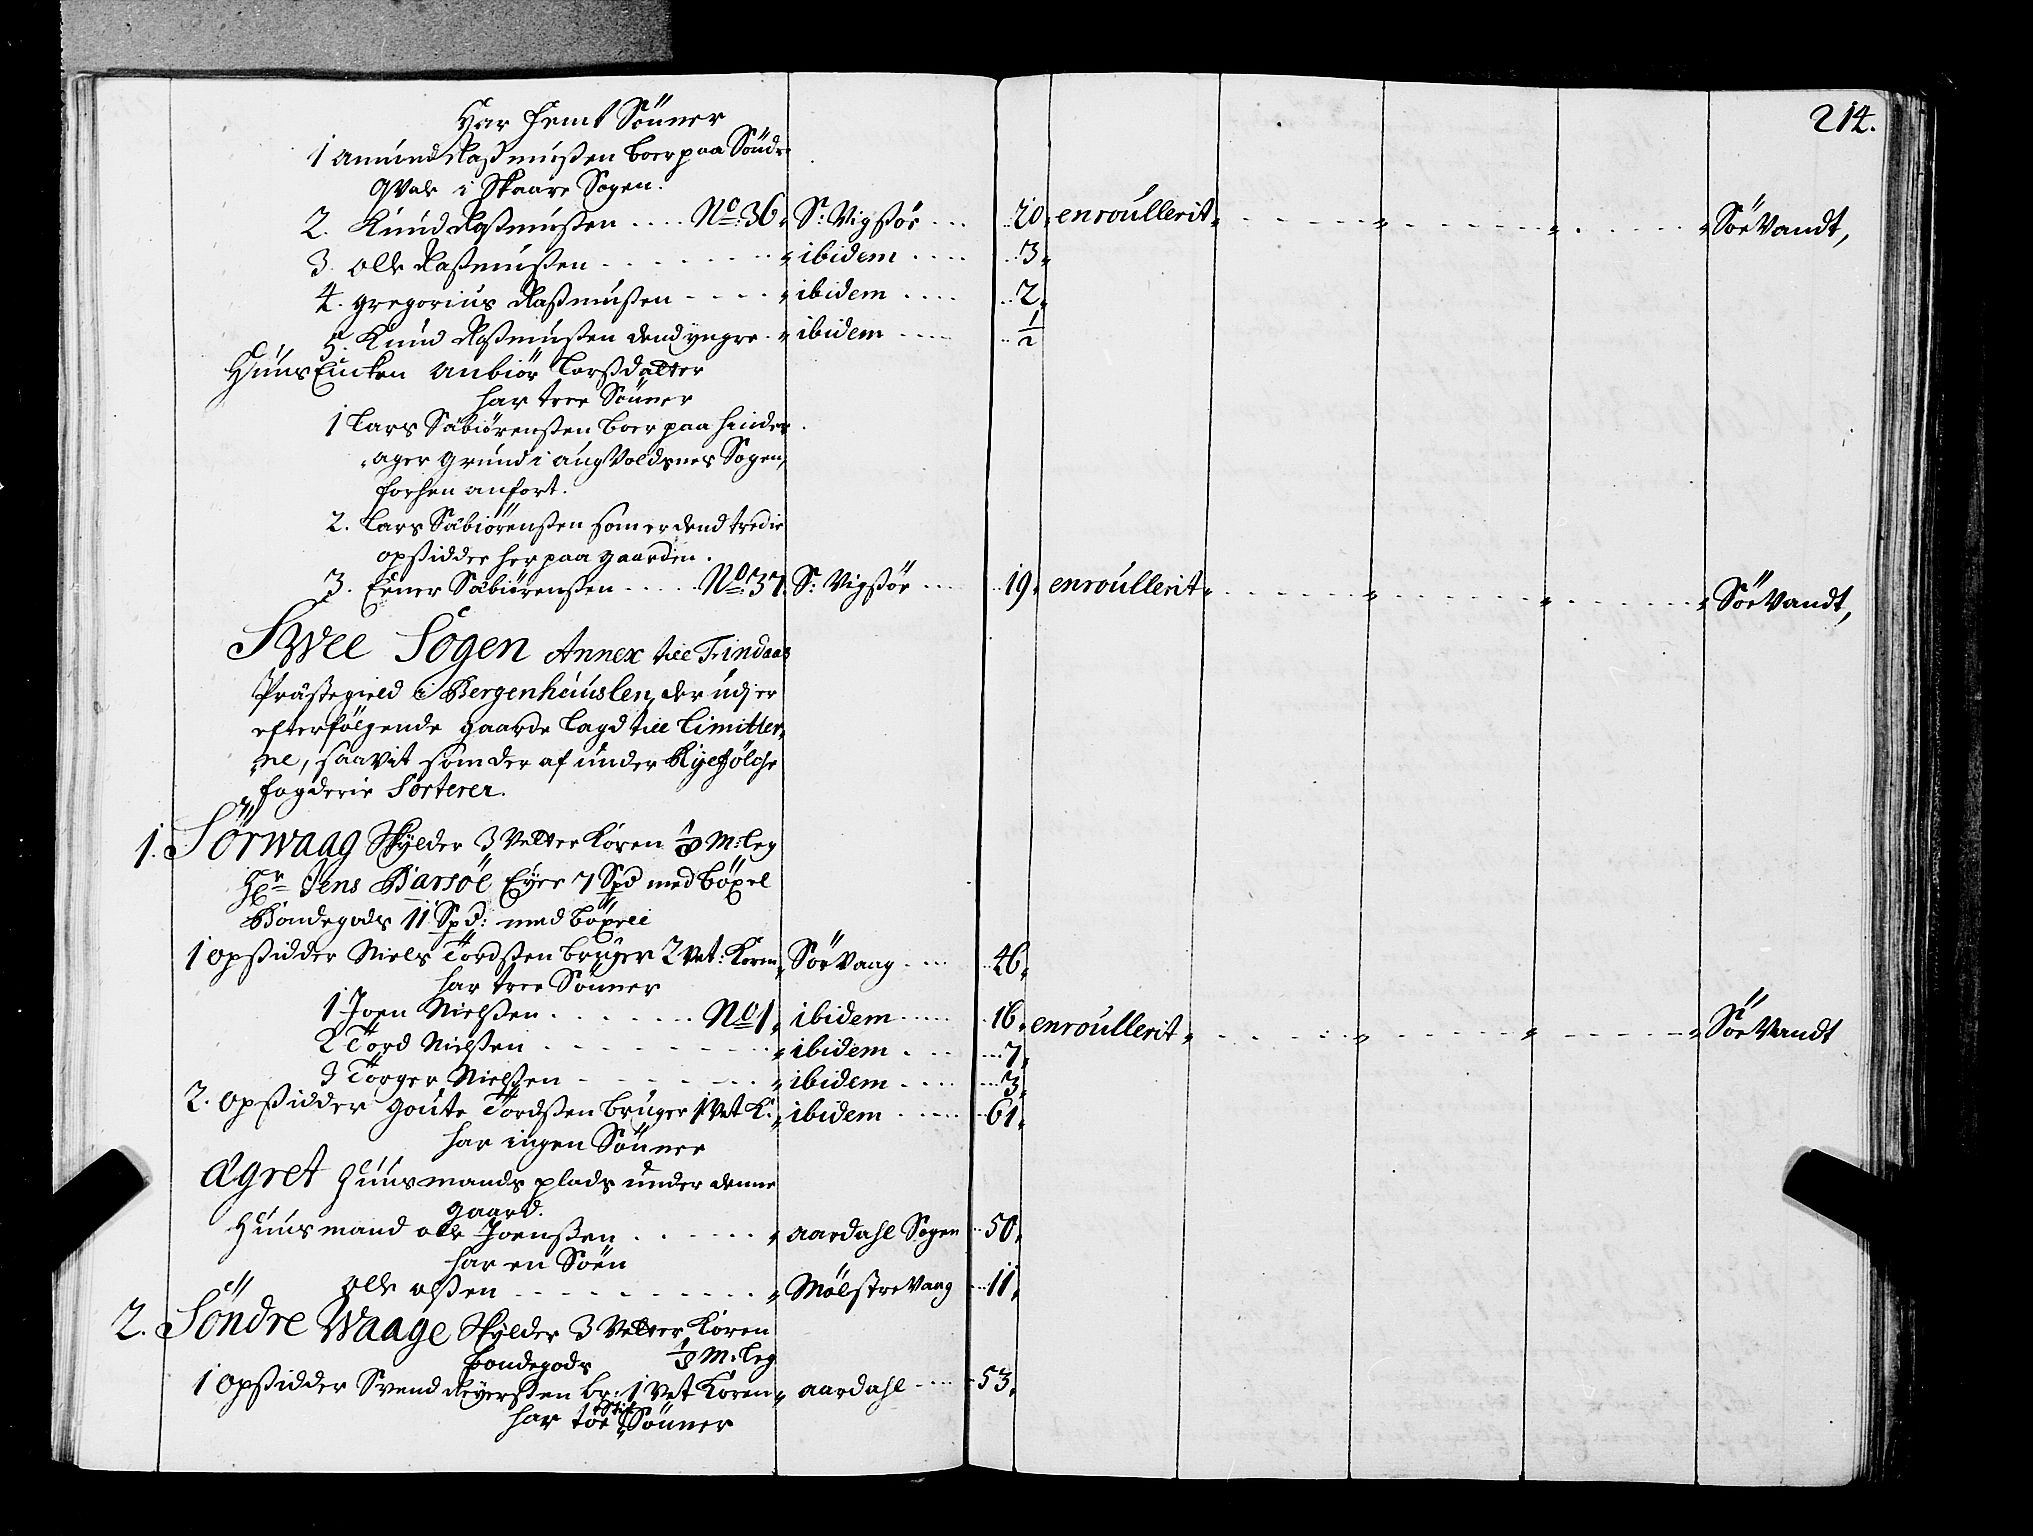 214.
Har femt Sönner
1 Amund Rasmusßen boer paa Söndr
qvale i Skaare Sogen.
2. Knud Rasmusßen .... No: 36, S: Vigsør ... 20, enroullerit, Söe Vandt,
3. olle Rasmusßen - - - - " ibidem .... 3,
4. gregorius Rasmusßen - - - " ibidem .... 2,
5. Knud Rasmusßen dend yngre. " ibidem .... 1/2
Huus Encken Anbiör larsdatter
har tree Sönner
1 lars Säbiörensßen boer paa hinder,
ager grund i augVoldsnes Sogen,
forhen anfort.
2. lars Säbiörensßen som er dend tredie
opsidder her paa gaarden.
3. Einer Säbiörensßen ..... No: 37. S: Vigsør .... 19, enroullerit, Söe Vandt,
Swee Sogen Annex till Findaas
Præstegield i Bergenhuuslen, der udj er
efterfölgende gaarde lagd till limitter,
ne, saavit som der af under Ryefölche
fogderie Sorterer.
1. Sörwaag Skylder 3 Vetter Koren 1/3 M: leg
Hr Jens Barsöe Eyer 7 Spd med böxel
Bondegods 11 Spd: med böxell
1 opsidder Niels Tordsßen bruger 2 Vet: Koren, Söe Vaag .... 46,
har tree Sönner
1 Joen Nielsßen ...... No 1, ibidem ..... 16, enroullerit, Söe Vandt
2 Tord Nielsßen - - - - - " ibidem .... 7,
3 Torger Nielsßen - - - - " ibidem .... 3,
2. opsidder goute Tordsßen bruger 1 Vet K:, ibidem ..... 61,
har ingen Sönner
Agret huusmands plads under denne
gaard.
Huusmand olle Joensßen ..... " aardahl Sogen .. 50,
har en Söen
olle olsßen - - - - - - " Mölstre Vaag .... 11,
2. Söndre Waage Skylder 3 Vetter Koren
bondegods 1/3 M: leg
1 opsidder Svend Reyersßen br: 1 Vet Koren " aardahl .... 53,
har toe Stif Sönner